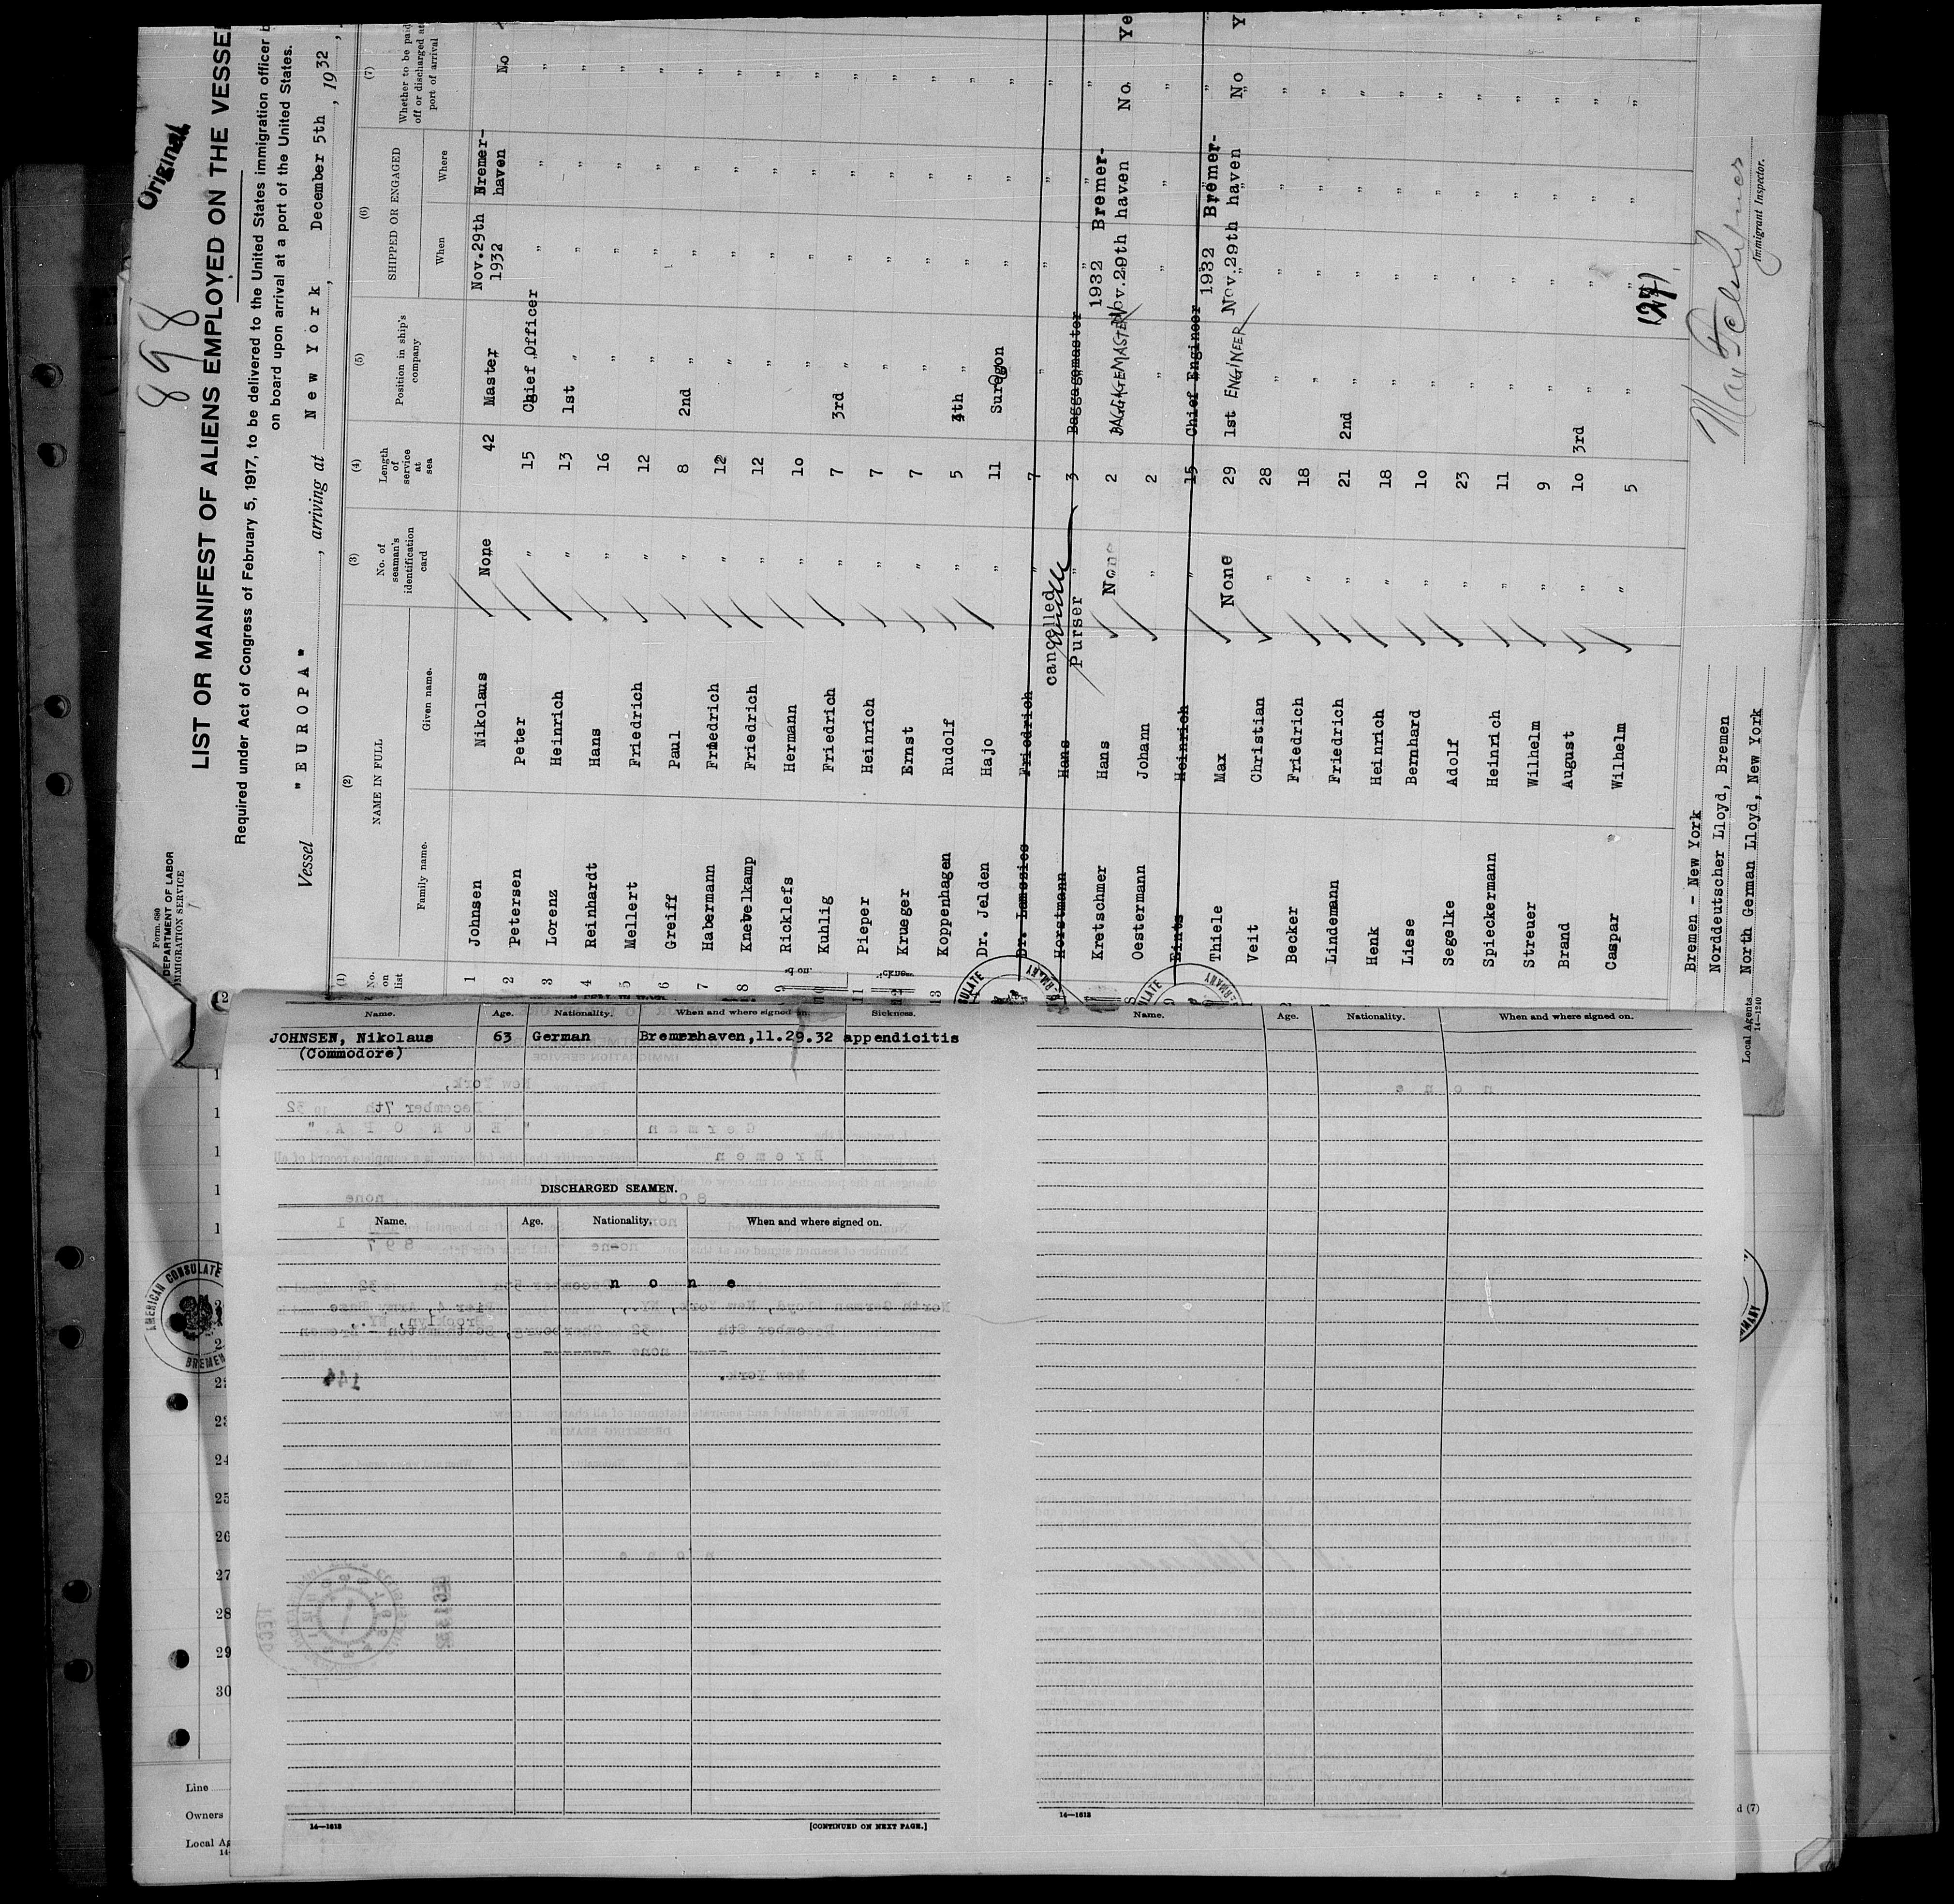 Original
898
Form 680
DEPARTMENT OF LABOR
IMMIGRATION SERVICE
LIST OR MANIFEST OF ALIENS EMPLOYED ON THE VESSEL
Required under Act of Congress of February 5, 1917, to be delivered to the United States immigration officer
on board upon arrival at a port of the United States.
Vessel "EUROPA", arriving at New York, December 5th, 1932,
(1) (2) (3) (4) (5) (6) (7)
No. on list NAME IN FULL No. of seaman's identification card Length of service at sea Position in ship's company SHIPPED OR ENGAGED Whether to be paid off or discharged at port of arrival
Family name. Given name. When Where
1 Johnsen Nikolaus None 42 Master Nov.29th 1932 Bremer-haven No
2 Petersen Peter " 15 Chief Officer " " "
3 Lorenz Heinrich " 13 1st " " " "
4 Reinhardt Hans " 16 " " " "
5 Mellert Friedrich " 12 " " " "
6 Greiff Paul " 8 2nd " " " "
7 Habermann Friedrich " 12 " " " "
8 Knebelkamp Friedrich " 12 " " " "
9 Ricklefs Hermann " 10 " " " "
10 Kuhlig Friedrich " 7 3rd " " " "
11 Pieper Heinrich " 7 " " " "
12 Krueger Ernst " 7 " " " "
13 Koppenhagen Rudolf " 5 4th " " " "
Dr. Jelden Hajo " 11 Surgeon " " "
Dr. Lamezies Friedrich " 7 " " " "
cancelled
Horstmann Hans " 3 Baggagemaster " " "
Purser
Kretschmer Hans None 2 BAGGAGEMASTER Nov.29th 1932 Bremer-haven No. Ye
Oestermann Johann " 2 " " " "
Heinrich " 15 Chief Engineer " " "
Thiele Max None 29 1st ENGINEER Nov.29th 1932 Bremer-haven No Y
Veit Christian " 28 " " " "
Becker Friedrich " 18 " " " "
Lindemann Friedrich " 21 2nd " " " "
Henk Heinrich " 18 " " " "
Liese Bernhard " 10 " " " "
Segelke Adolf " 23 " " " "
Spieckermann Heinrich " 11 " " " "
Streuer Wilhelm " 9 " " " "
Brand August " 10 3rd " " " "
Caspar Wilhelm " 5 " " " "
Bremen - New York
Norddeutscher Lloyd, Bremen
Local Agents North German Lloyd, New York
14—1240
Immigrant Inspector.
Name. Age. Nationality. When and where signed on. Sickness.
JOHNSEN, Nikolaus 63 German Bremerhaven,11.29.32 appendicitis
(Commodore)
DISCHARGED SEAMEN.
Name. Age. Nationality. When and where signed on.
n o n e
14—1613 [CONTINUED ON NEXT PAGE.]
Name. Age. Nationality. When and where signed on.
14—1613
AMERICAN CONSULATE
BREMEN
24
25
26
27
28
29
30
Line
Owners
Local Ag
d (7)